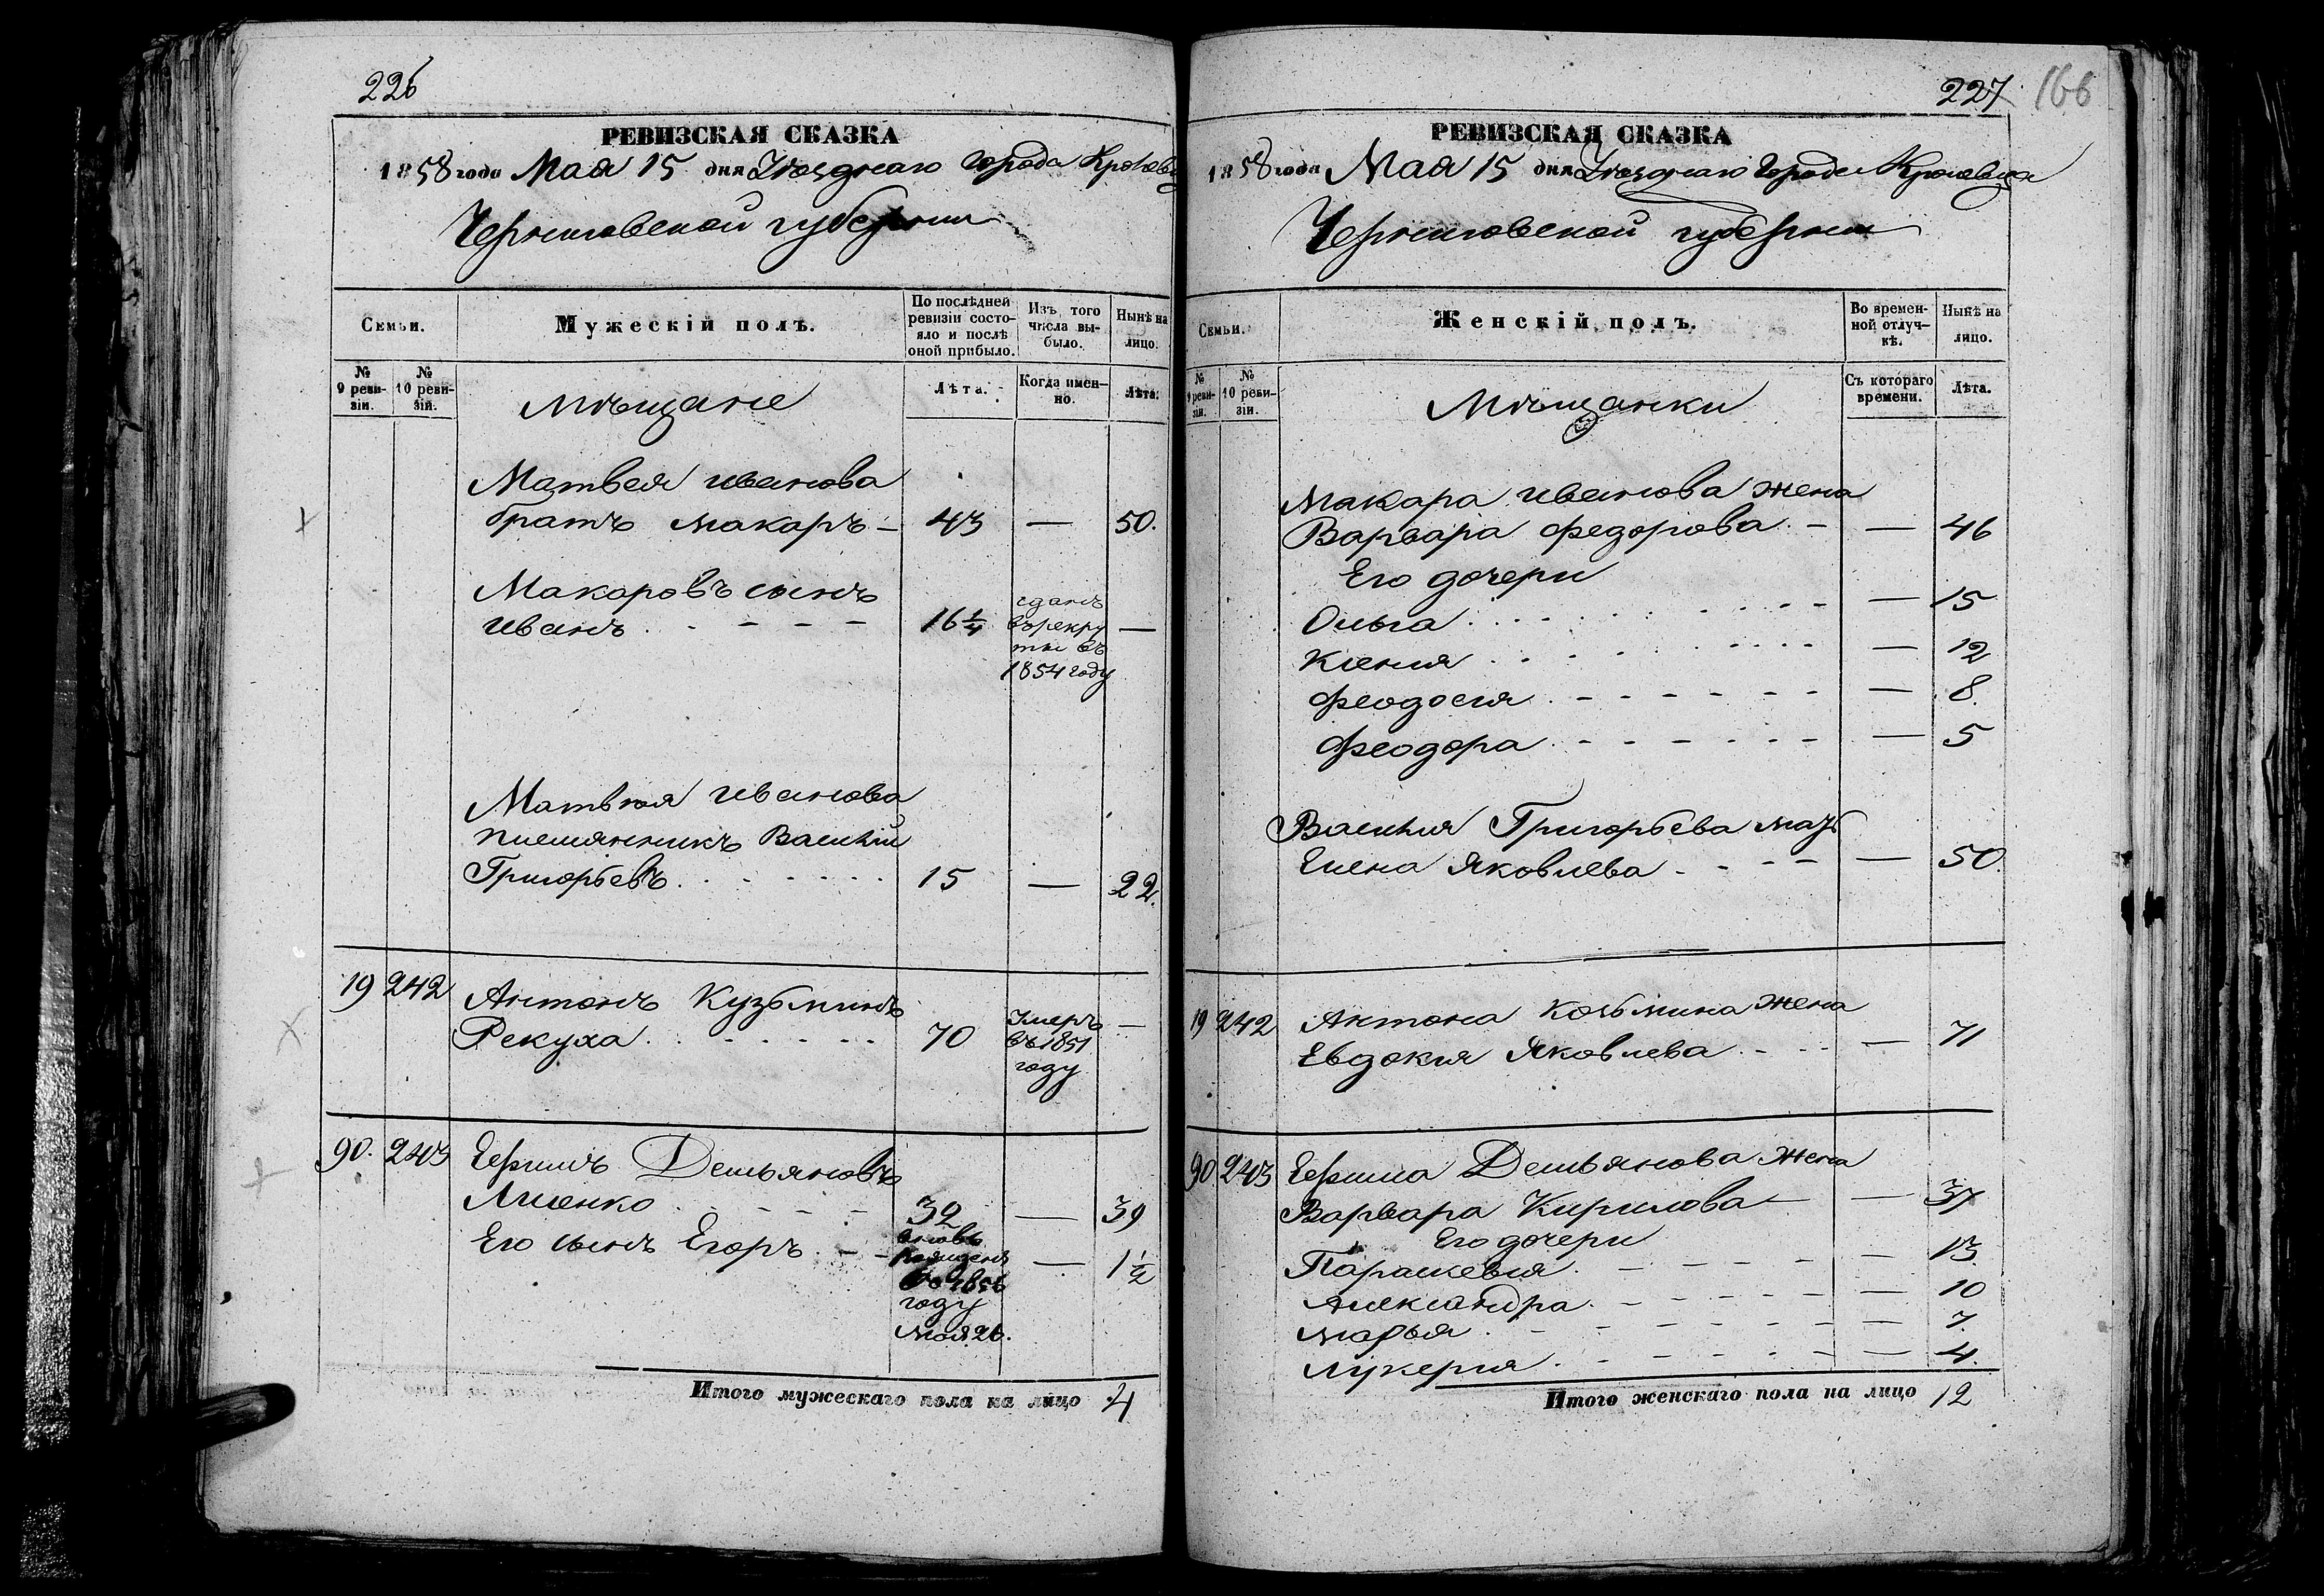 226
РЕВИЗСКАЯ СКАЗКА
1858 года Мая 15 дня Уѣзднаго города Кролевца
Черниговской губернии
Семьи.
Мужескій полъ.
По послѣдней ревизіи состояло и послѣ оной прибыло.
Изъ того числа выбыло.
Нынѣ на лицо.
№ 9 ревизіи.
№ 10 ревизіи.
Мѣщане
Лѣта.
Когда именно.
Лѣта.
Матвея Иванова
братъ Макаръ — 43 — 50.
Макаровъ сынъ
Иванъ 16 1/4 сданъ въ рекруты въ 1854 году —
Матвѣя Иванова
племянникъ Василій
Григорьевъ 15 — 22.
19 242 Антонъ Кузьминъ
Рекуха 70 Умеръ въ 1851 году —
90. 243 Ефимъ Демьяновъ
32 — 39
Его сынъ Егоръ вновь рожденъ 1856 году мая 26. — 1 1/2
Итого мужескаго пола на лицо 4
227 166
РЕВИЗСКАЯ СКАЗКА
1858 года Мая 15 дня Уѣзднаго города Кролевца
Черниговской губернии
Семьи.
Женскій полъ.
Во временной отлучкѣ.
Нынѣ на лицо.
№ 9 ревизіи.
№ 10 ревизіи.
Мѣщанки
Съ котораго времени.
Лѣта.
Макара Иванова жена
Варвара Федорова — — 46
Его дочери
Ольга — 15
Ксения — 12
Феодосия — 8.
Феодора — 5
Василия Григорьева мать
Елена Яковлева — 50.
19 242 Антона Козьмина жена
Евдокия Яковлева — 71
90 243 Ефима Демьянова жена
Варвара Кирилова — — 37
Его дочери
Параскевия — 13
Александра — 10
Марья — 7.
Лукерия — 4.
Итого женскаго пола на лицо 12